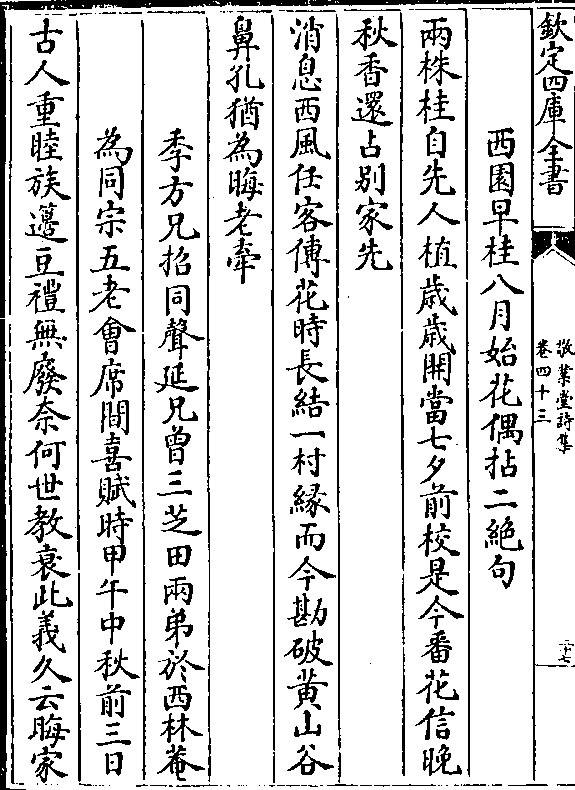 欽定四庫全書
敬業堂詩集
卷四十三
二十七
西園早桂八月始花偶拈二絶句
兩株桂自先人植歲歲開當七夕前校是今番花信晚
秋香還占別家先
消息西風任客傳花時長結一村緣而今勘破黄山谷
鼻孔猶為晦老牽
季方兄招同聲延兄曾三芝田兩弟於西林菴
為同宗五老會席間喜賦時甲午中秋前三日
古人重睦族籩豆禮無廢奈何世教衰此義久云晦家